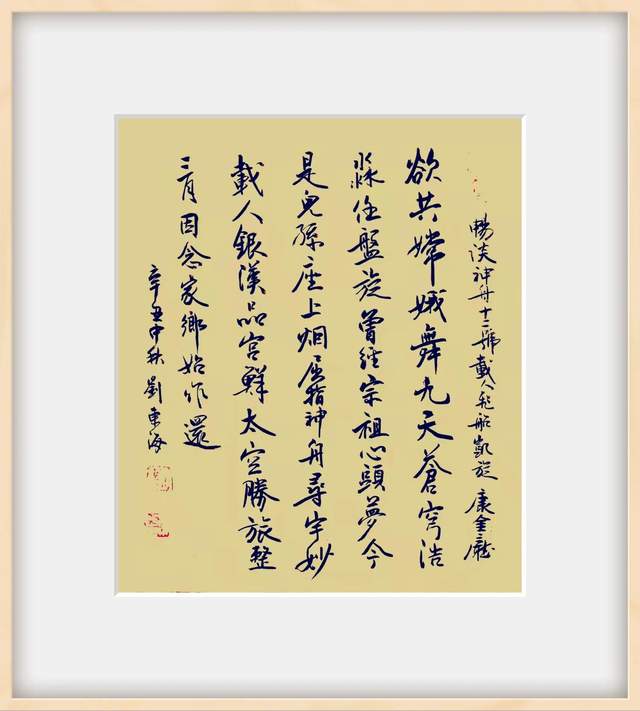 暢談神舟十二號載人飛船凱旋 康金龍
欲共嫦娥舞九天蒼穹浩
淼任盤旋曾經宗祖心頭夢今
是兒孫座上烟屈指神舟尋宇妙
載人銀漢品宮鮮太空勝旅整
三月因念家鄉始作還
辛丑中秋劉東海